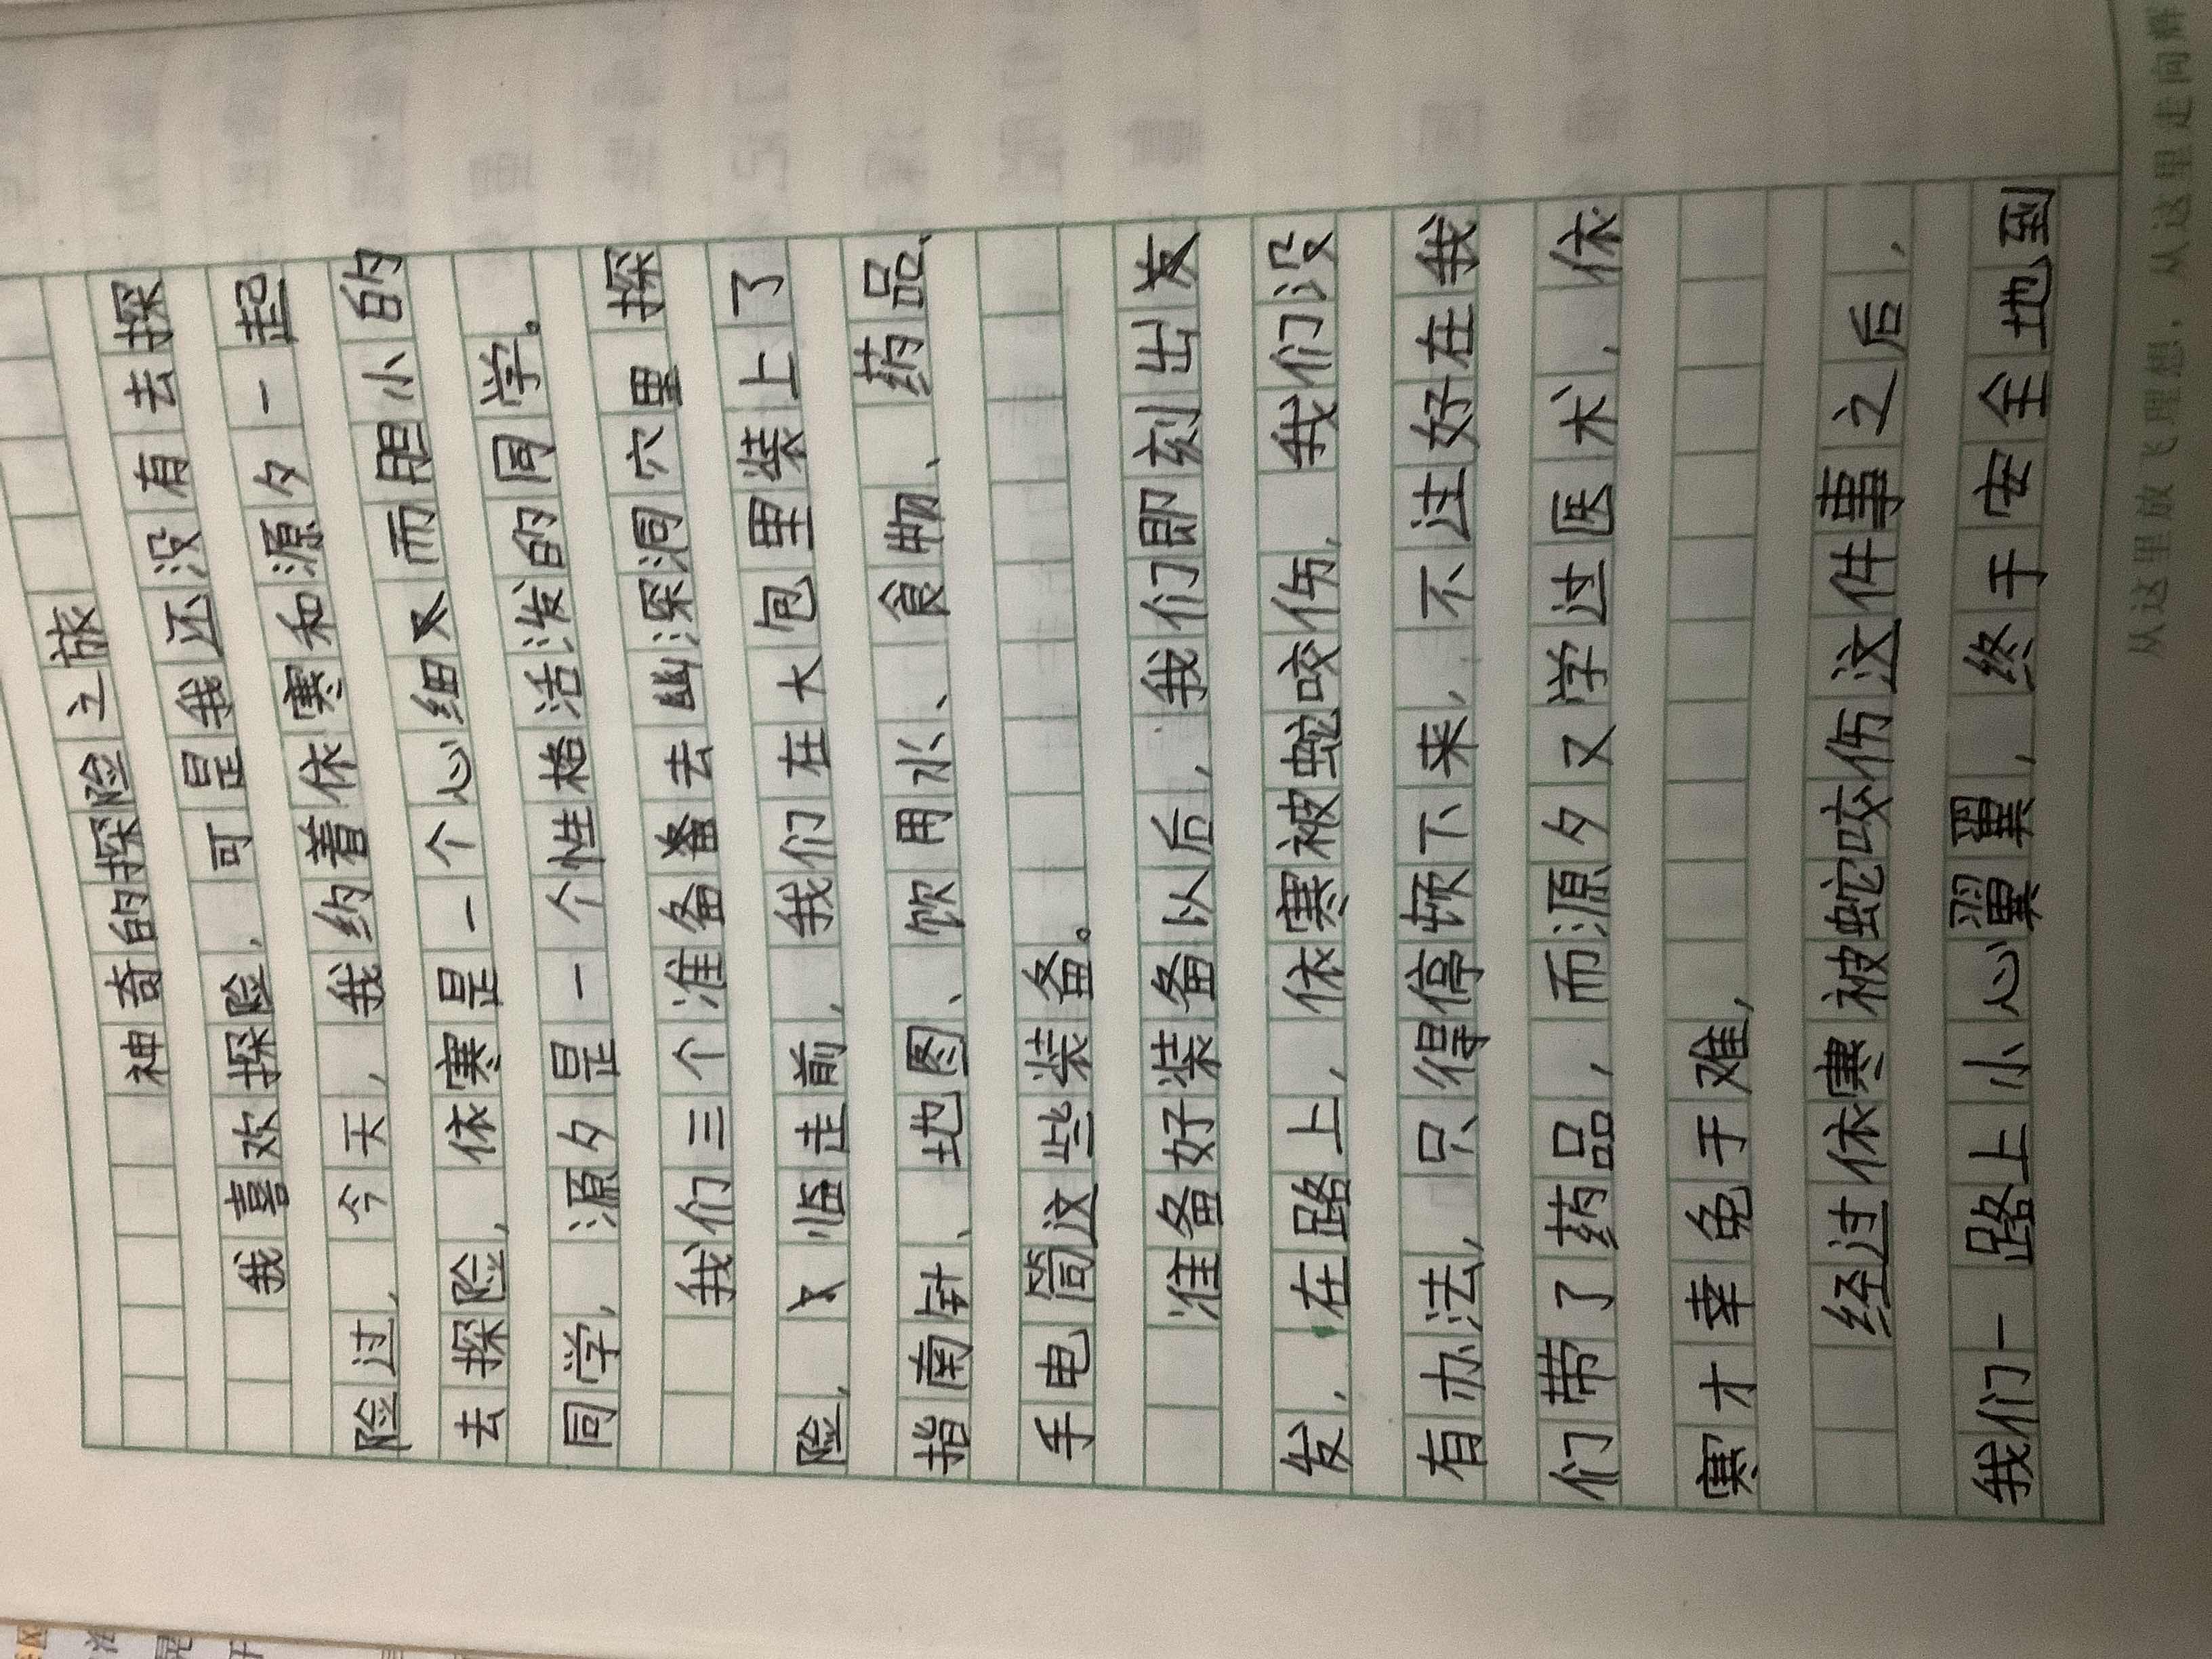 神奇的探险之旅
我喜欢探险，可是我还没有去探
险过，今天，我约着依寒和源夕一起
去探险，依寒是一个心细又而胆小的
同学，源夕是一个性格活泼的同学。
我们三个准备备去幽深洞穴里探
险，临走前，我们在大包里装上了
指南针、地图、饮用水、食物、药品、
手电筒这些装备。
准备好装备以后，我们即刻出发
发，在路上，依寒被蛇咬伤，我们没
有办法，只得停顿下来，不过好在我
们带了药品，而源夕又学过医术，依
寒才幸免于难，
经过依寒被蛇咬伤这件事之后，
我们一路上小心翼翼，终于安全地到
从这里放飞理想，从这里走向辉